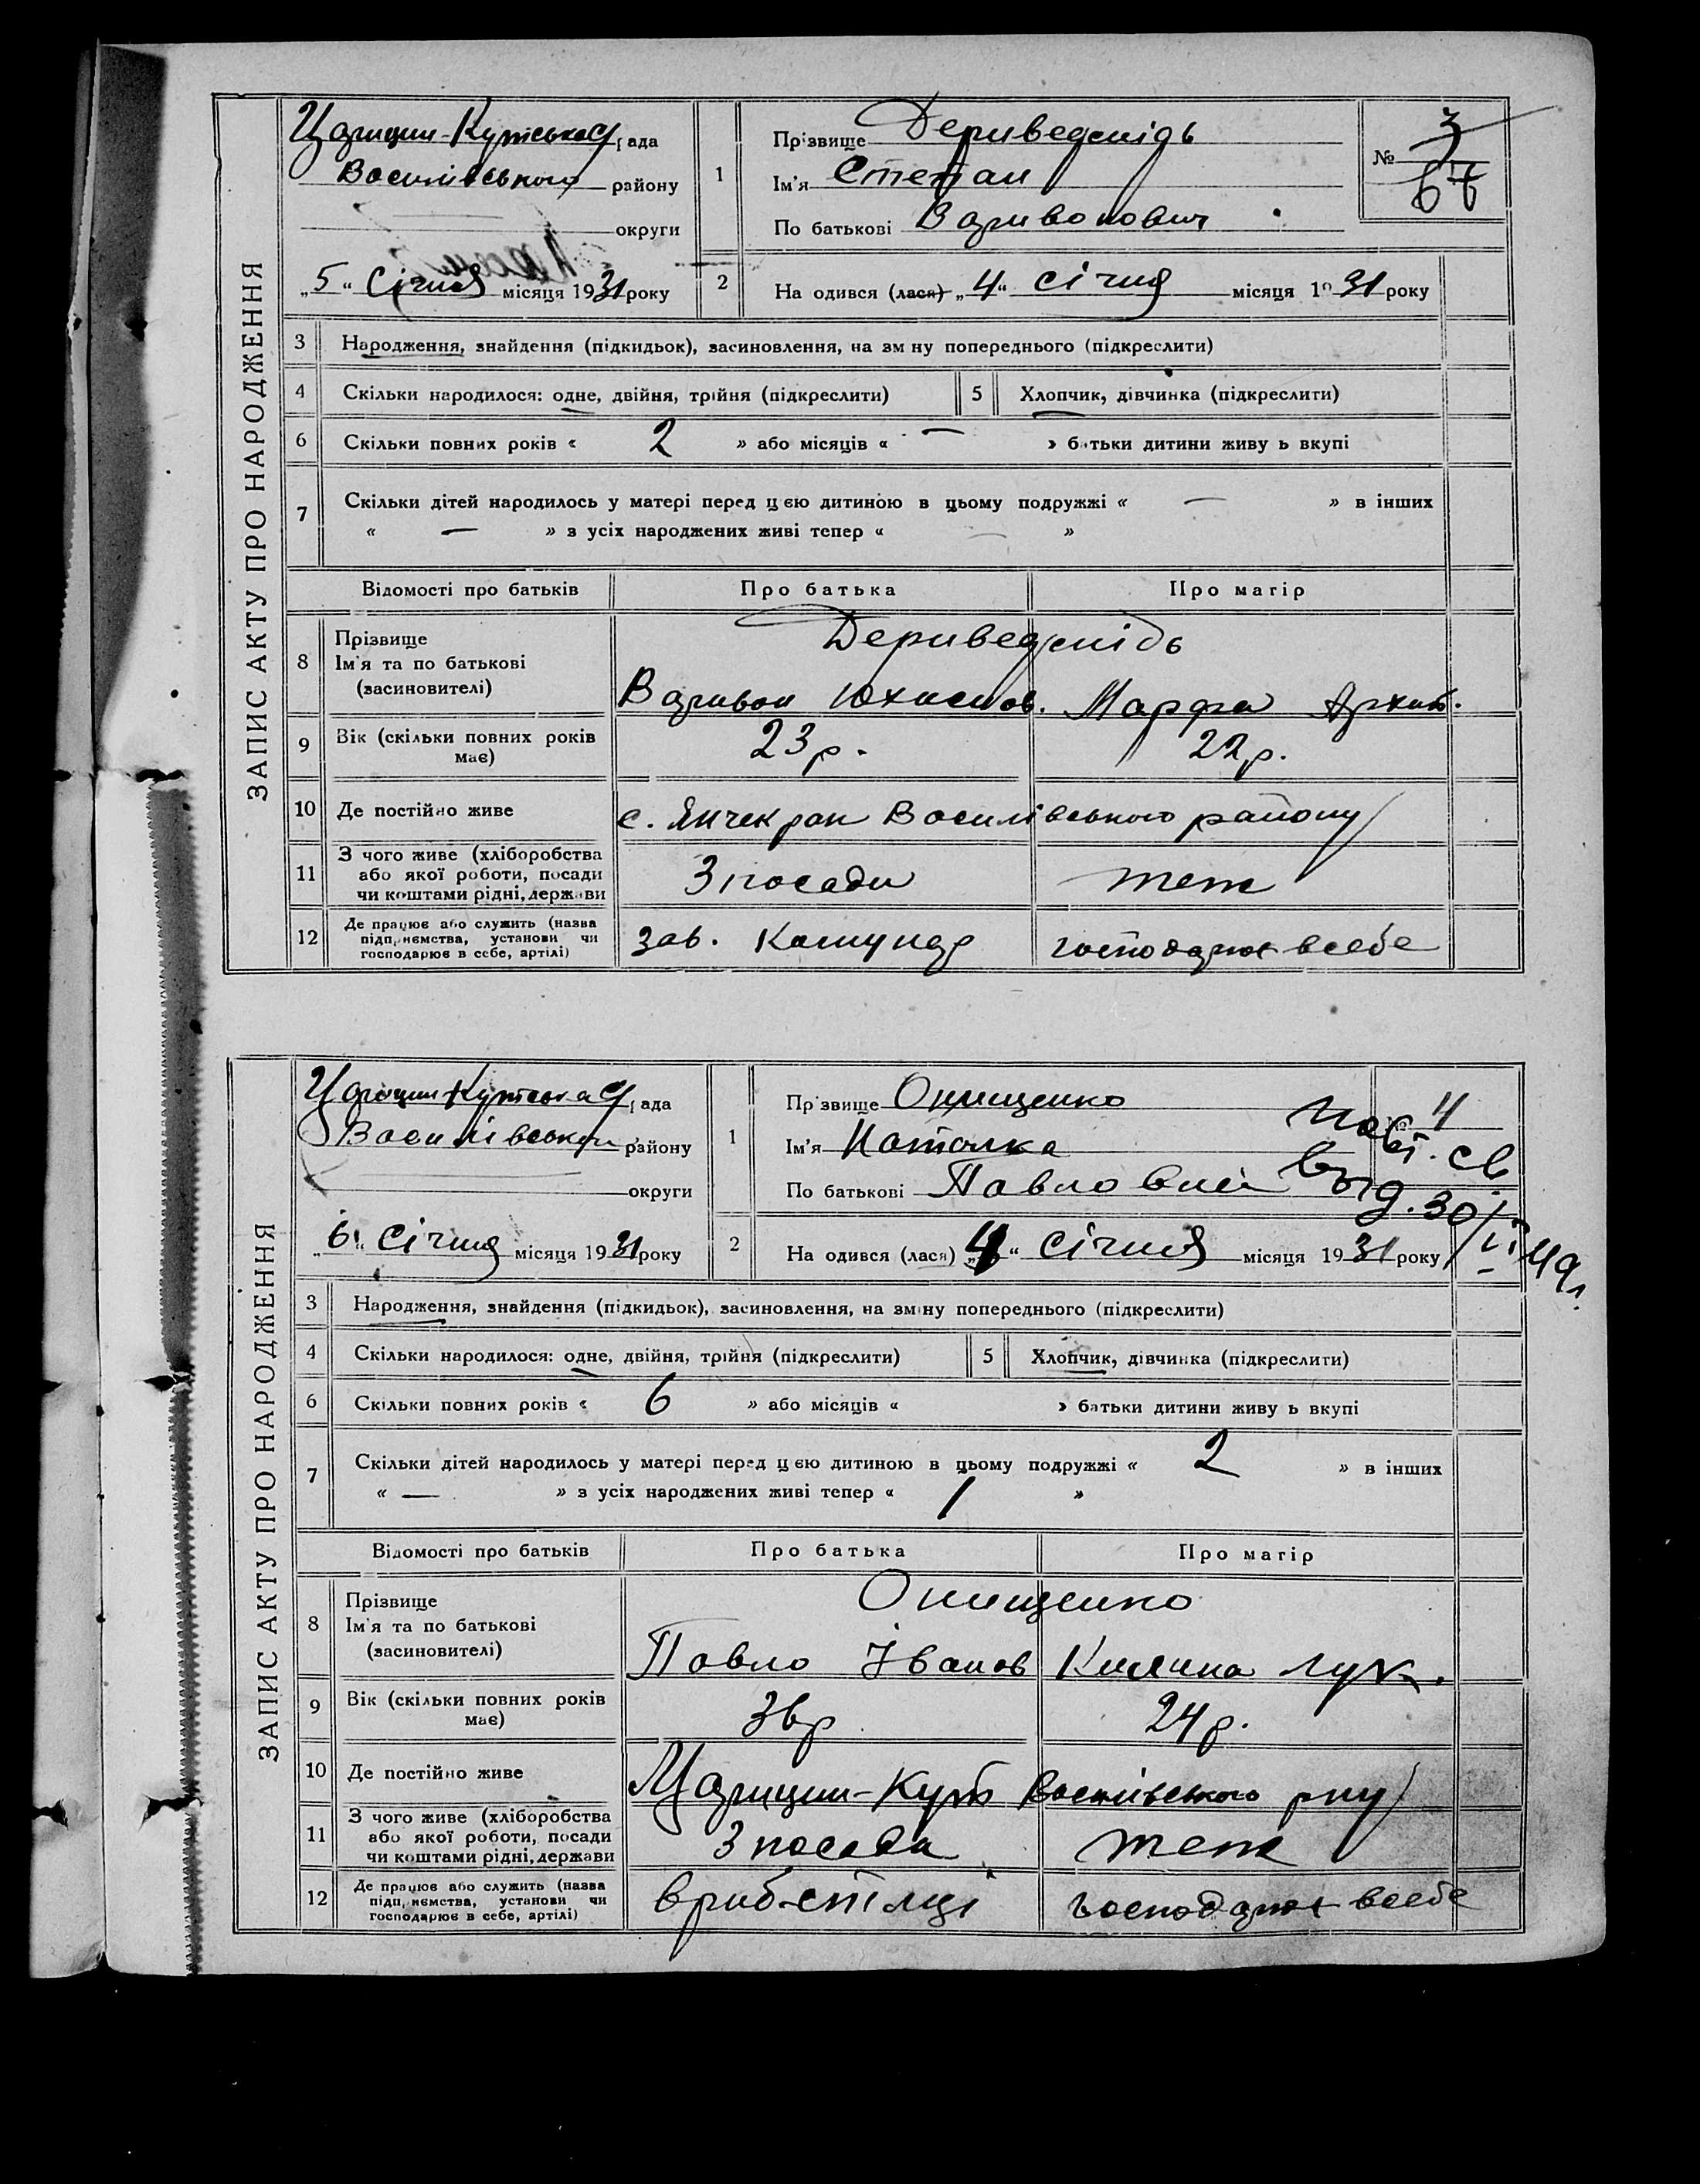 ЗАПИС АКТУ ПРО НАРОДЖЕННЯ
Царицин-Кутська рада
Василівського району
округи
„5“ Січня місяця 1931 року
1 Прізвище Дериведмідь
Ім'я Степан
По батькові Варивонович
№ 3
67
2 На одився (лася) „4“ Січня місяця 1931 року
3 Народження, знайдення (підкидьок), засиновлення, на зм ну попереднього (підкреслити)
4 Скільки народилося: одне, двійня, трійня (підкреслити) 5 Хлопчик, дівчинка (підкреслити)
6 Скільки повних років « 2 » або місяців « — » батьки дитини живу ь вкупі
7 Скільки дітей народилось у матері перед цією дитиною в цьому подружжі « — » в інших
« — » з усіх народжених живі тепер « — »
Відомості про батьків Про батька Про матір
8 Прізвище
Ім'я та по батькові
(засиновителі)
Дериведмідь
Варивон Юхимов. Марфа Архип.
9 Вік (скільки повних років має) 23 р. 22 р.
10 Де постійно живе с. Янчекрак Василівського району
11 З чого живе (хліборобства
або якої роботи, посади
чи коштами рідні, держави
З посади теж
12 Де працює або служить (назва
підприємства, установи чи
господарює в себе, артілі)
зав. господарює в себе
ЗАПИС АКТУ ПРО НАРОДЖЕННЯ
Царицин-Кутська рада
Василівського району
округи
„6“ Січня місяця 1931 року
1 Прізвище Онищенко
Ім'я Наталка
По батькові Павловна
№ 4
Повт. св
выд. 30/VI 49 г.
2 На одився (лася) „4“ Січня місяця 1931 року
3 Народження, знайдення (підкидьок), засиновлення, на зміну попереднього (підкреслити)
4 Скільки народилося: одне, двійня, трійня (підкреслити) 5 Хлопчик, дівчинка (підкреслити)
6 Скільки повних років « 6 » або місяців « » батьки дитини живу ь вкупі
7 Скільки дітей народилось у матері перед цією дитиною в цьому подружжі « 2 » в інших
« — » з усіх народжених живі тепер « 1 »
Відомості про батьків Про батька Про матір
8 Прізвище
Ім'я та по батькові
(засиновителі)
Онищенко
Павло Іванов Килина Лук.
9 Вік (скільки повних років має) 36 р 24 р.
10 Де постійно живе Царицин-Кут Василівського рну
11 З чого живе (хліборобства
або якої роботи, посади
чи коштами рідні, держави
З посади теж
12 Де працює або служить (назва
підприємства, установи чи
господарює в себе, артілі)
в риб-спілці господарює в себе